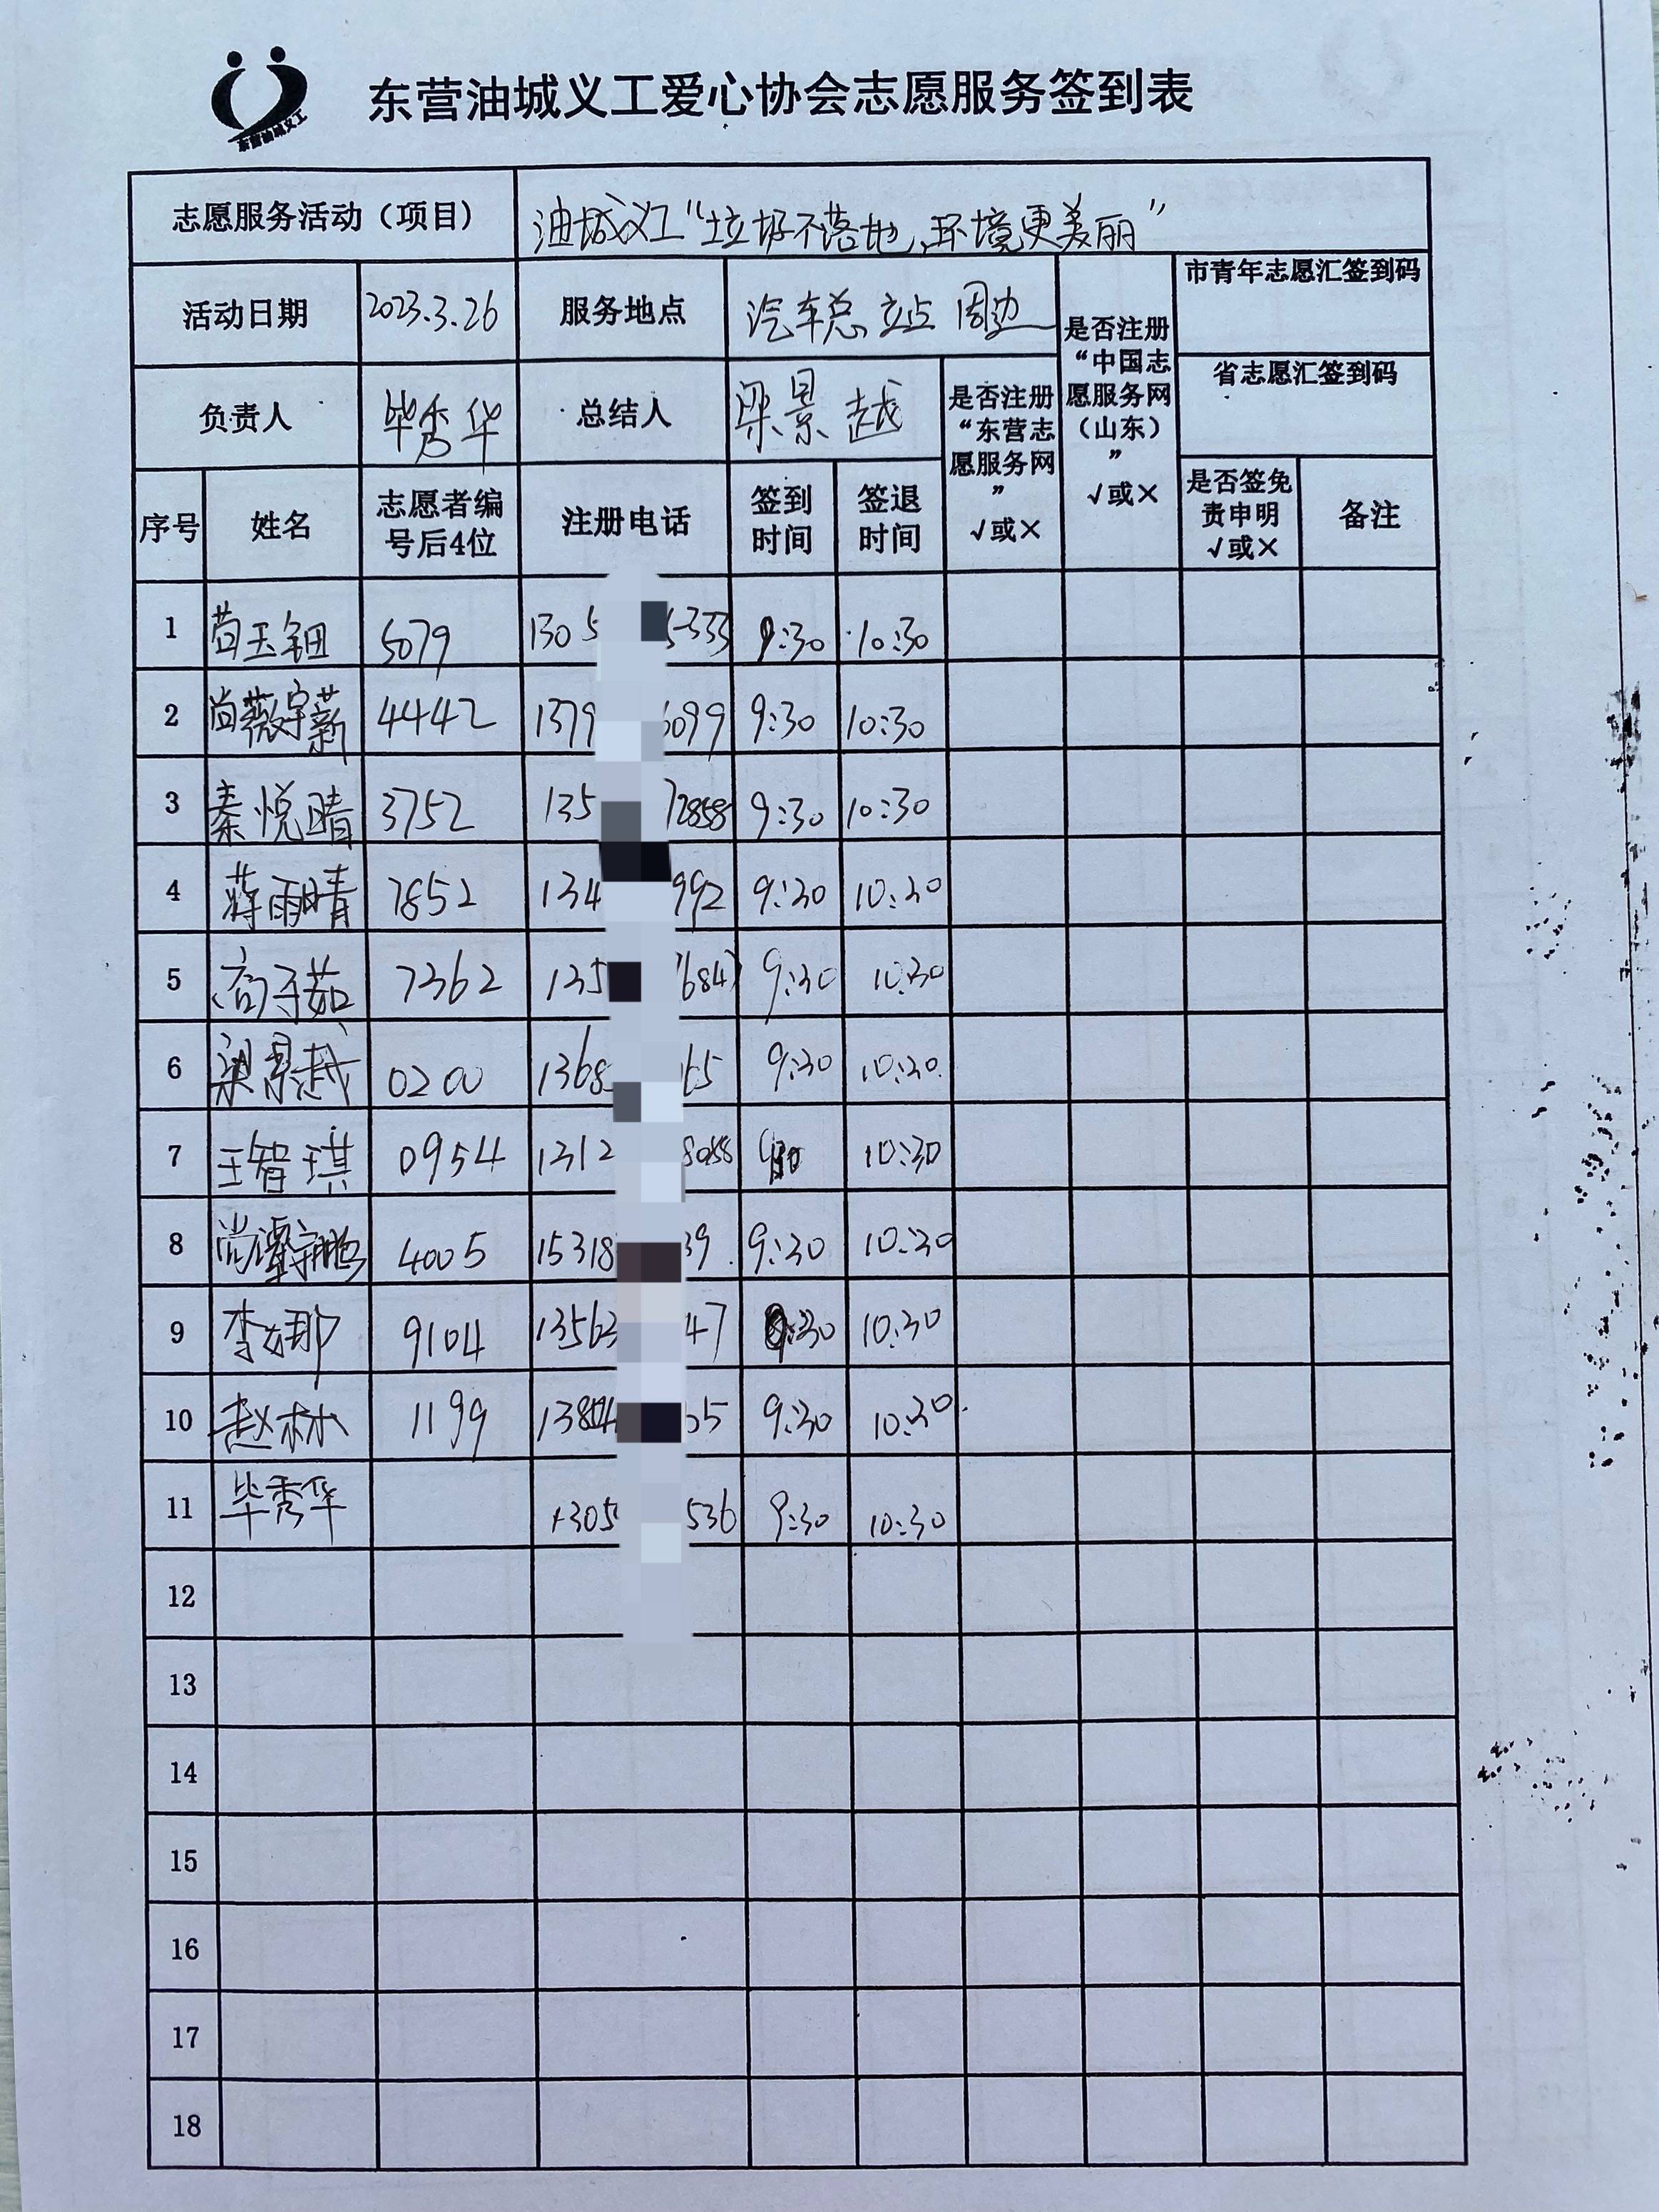 东营油城义工
东营油城义工爱心协会志愿服务签到表
志愿服务活动（项目） 油城义工“垃圾不落地，环境更美丽”
活动日期 2023.3.26 服务地点 汽车总站点周边
是否注册“中国志愿服务网（山东）”√或×
市青年志愿汇签到码
省志愿汇签到码
负责人 毕秀华 总结人 梁景越
是否注册“东营志愿服务网”√或×
序号 姓名 志愿者编号后4位 注册电话 签到时间 签退时间 是否签免责申明√或× 备注
1 5079 1305 5333 9:30 10:30
2 尚薇宇薪 4442 1379 6099 9:30 10:30
3 秦悦晴 3752 135 72858 9:30 10:30
4 蒋雨晴 7852 134 992 9:30 10:30
5 高子茹 7362 135 684 9:30 10:30
6 梁景越 0200 1368 65 9:30 10:30
7 王智琪 0954 1312 8088 10:30
8 4005 15318 39 9:30 10:30
9 李娜 9104 13563 47 9:30 10:30
10 赵林 1199 13804 05 9:30 10:30
11 毕秀华 1305 536 9:30 10:30
12
13
14
15
16
17
18